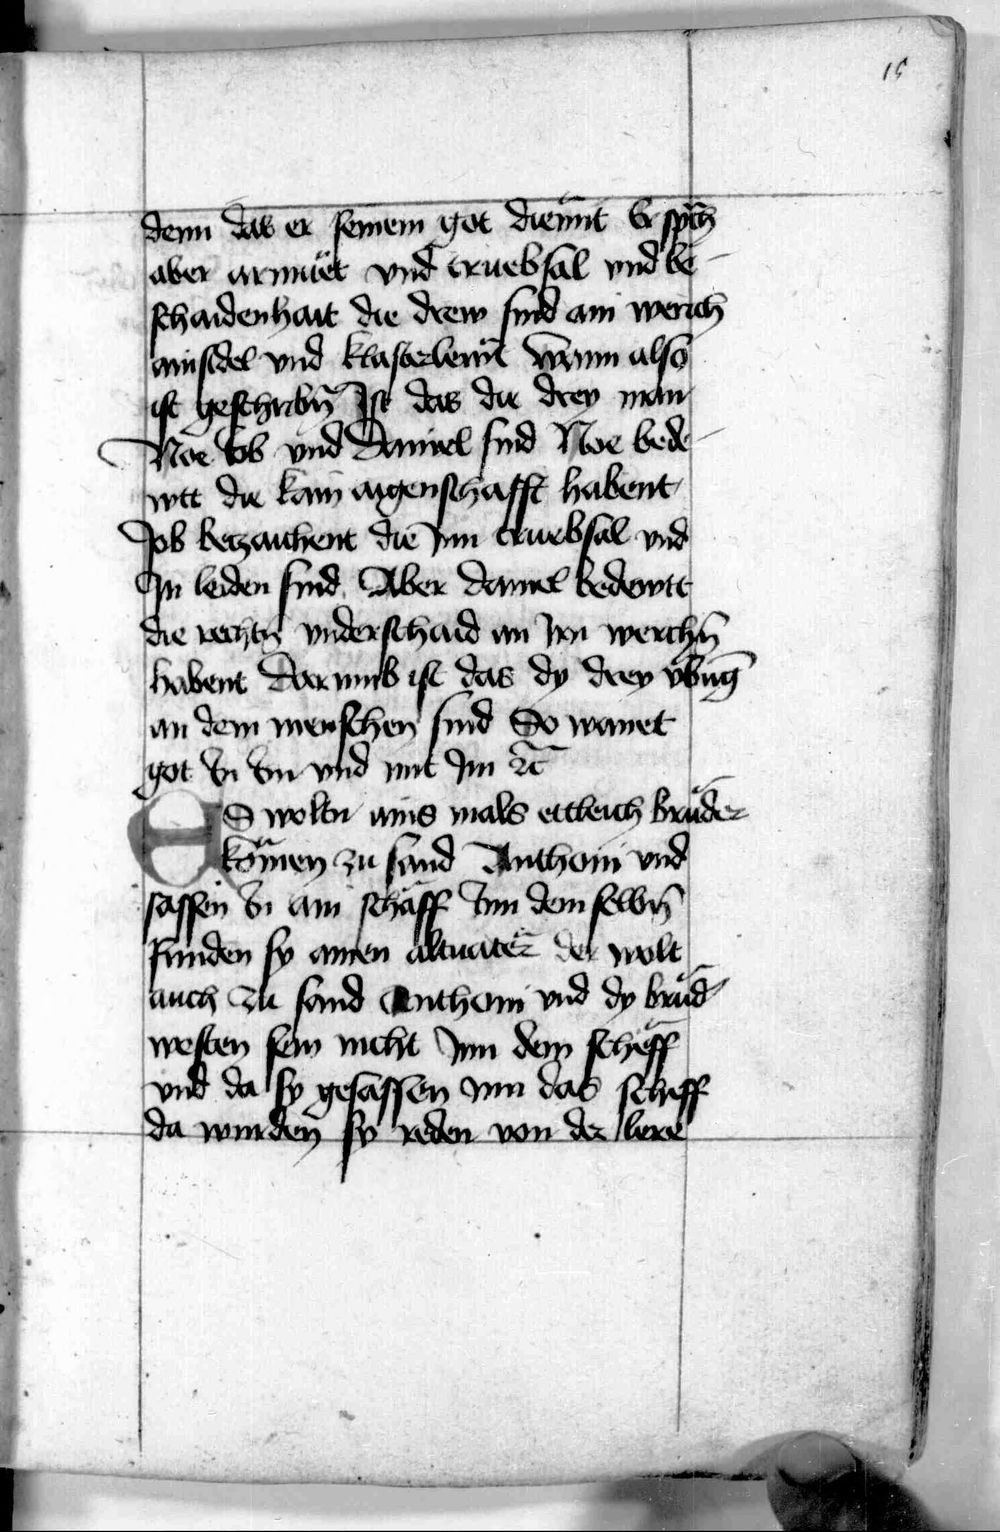 15
denn das er seinem got dienn̄t Er sp̄ch
aber armuͤet vnd truebsal vnd be
schaidenhait die drew sind ain werich
ainsidel vnd klosterlewt̄ wann also
ist geschribn̄ Ist das die drey man
Noe Iob vnd Daniel sind Noe bede
wtt die kain aigenschafft habent
Iob betzaichent die Inn truebsal vnd
In leiden sind Aber daniel bedewtt
die rechtn̄ vnderschaid an Irn werchn̄
habent Dar vmb ist das dy drey vͤbūg
an dem menschen sind So wanet
got bi Im vnd mit Im ⁊c̄
ES woltn ains mals ettleich bruͤder
koͤmen zu sand Anthoni vnd
sassen bi ain schäff Inn dem selbn̄
funden sy ainen altuater̄ der wolt
auch zu sand Anthoni vnd dy bruͤd
westen sein nicht Inn dem scheff
vnd da sy gesassen Inn das schiff
da wurden sy reden von der lere